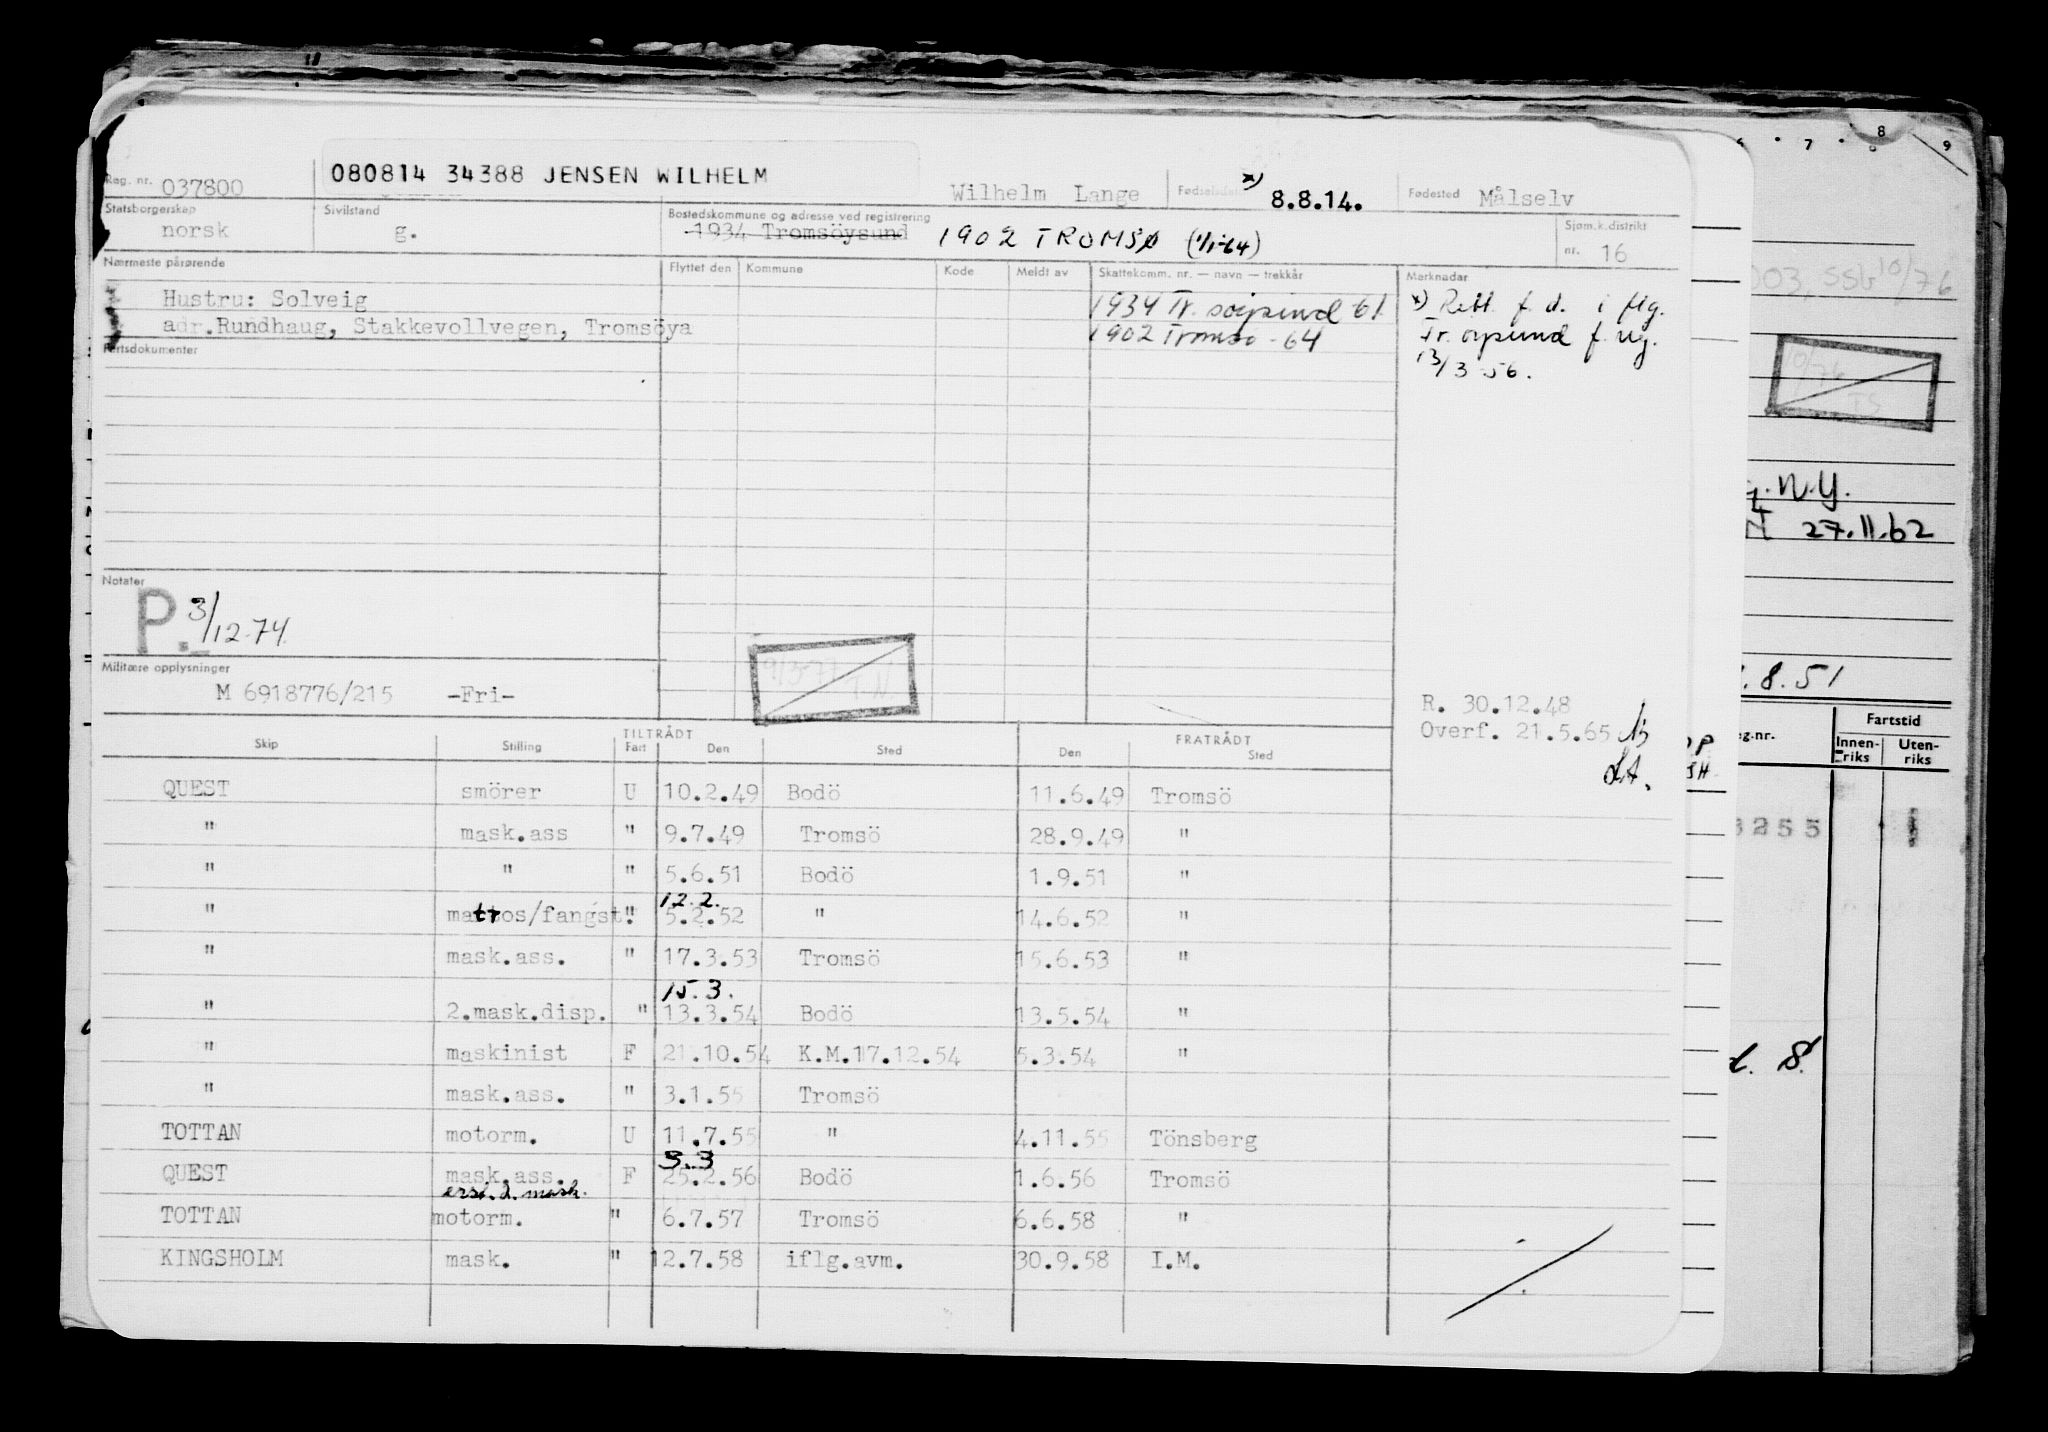 080814 34388 JENSEN WILHELM
Reg. nr. 037800 Wilhelm Lange Fødselsdat x) 8.8.14. Fødested Målselv
Statsborgerskap norsk Sivilstand g. Bostedskommune og adresse ved registrering 1934 Tromsöysund 1902 TROMSØ (1/1-64) Sjøm.k.distrikt nr. 16
Nærmeste pårørende Flyttet den Kommune Kode Meldt av Skattekomm. nr. — navn — trekkår Merknader
Hustru: Solveig 1934 Tr. söysund 61 x) Rett f. d. i flg.
adr.Rundhaug, Stakkevollvegen, Tromsöya 1902 Tromsø - 64 Tr. öysund f. reg.
Fartsdokumenter 13/3 56.
Notater
P. 3/12-74
Militære opplysninger
M 6918776/215 -Fri-
9/3-77 T.N.
R. 30.12.48
Overf. 21.5.65
TILTRÅDT FRATRÅDT
Skip Stilling Fart Den Sted Den Sted
QUEST smörer U 10.2.49 Bodö 11.6.49 Tromsö
" mask.ass " 9.7.49 Tromsö 28.9.49 "
" " " 5.6.51 Bodö 1.9.51 "
12.2.
" mattos/fangst. " 5.2.52 " 14.6.52 "
" mask.ass. " 17.3.53 Tromsö 15.6.53 "
15.3.
" 2.mask.disp. " 13.3.54 Bodö 13.5.54 "
" maskinist F 21.10.54 K.M.17.12.54 5.3.54 "
" mask.ass. " 3.1.55 Tromsö
TOTTAN motorm. U 11.7.55 " 4.11.55 Tönsberg
3.3
QUEST mask.ass. F 25.2.56 Bodö 1.6.56 Tromsö
erst. 2. mask.
TOTTAN motorm. " 6.7.57 Tromsö 6.6.58 "
KINGSHOLM mask. " 12.7.58 iflg.avm. 30.9.58 I.M.
7 8 9
003, SSV 10/76
10/76
N.Y.
27.11.62
.8.51
Fartstid
eg.nr. Innen-riks Uten-riks
3255